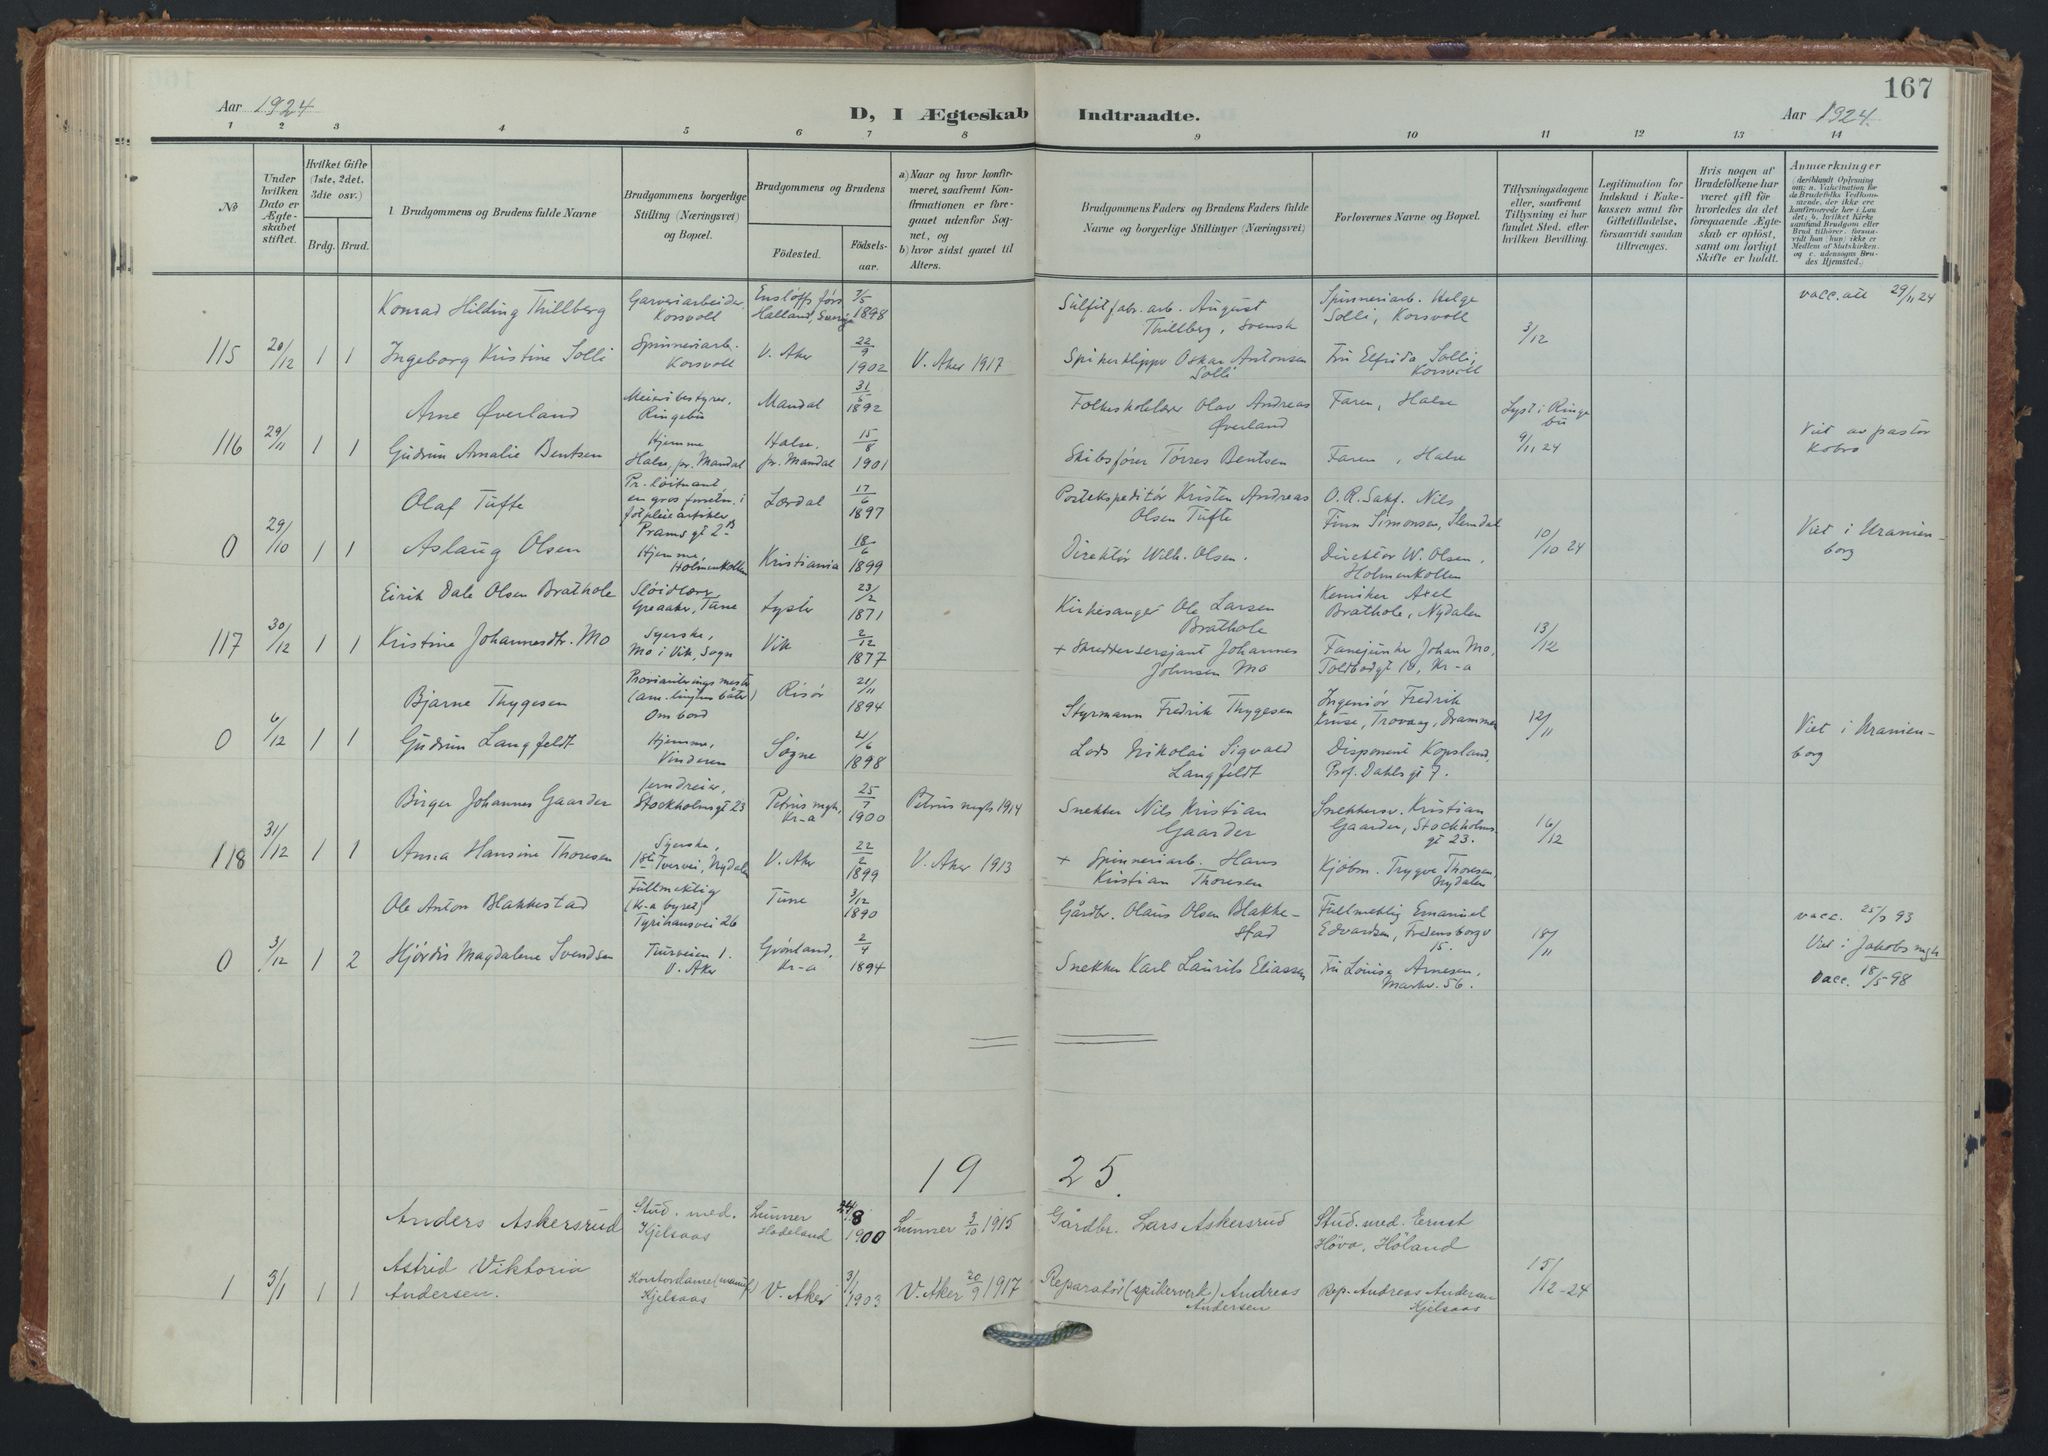 167
Aar 1924
D, I Ægteskab Indtraadte.
Aar 1924.
1 2 3 4 5 6 7 8 9 10 11 12 13 14
№
Under hvilken Dato er Ægteskabet stiftet.
Hvilket Gifte (1ste, 2det. 3die osv.)
Brdg. Brud.
1. Brudgommens og Brudens fulde Navne
Brudgommens borgerlige Stilling (Næringsvei) og Bopæl.
Brudgommens og Brudens
Födested.
Födselsaar.
a) Naar og hvor konfirmeret, saafremt Konfirmationen er foregaaet udenfor Sognet, og
b) hvor sidst gaaet til Alters.
Brudgommens Faders og Brudens Faders fulde Navne og borgerlige Stillinger (Næringsvei)
Forlovernes Navne og Bopæl.
Tillysningsdagene eller, saafremt Tillysning ei har fundet Sted, efter hvilken Bevilling.
Legitimation for Indskud i Enkekassen samt for Giftetilladelse, forsaavidt saadan tiltrænges.
Hvis nogen af Brudefolkene har været gift før hvorledes da det foregaaende Ægteskab er oplöst, samt om lovligt Skifte er holdt.
Anmærkninger
Konrad Hilding Thillberg Garveriarbeider Korsvoll Enslöffs förs Halland, Sverige 7/5 1898 Sulfitfabr.arb. August Thillberg, svensk Spinneriarb. Helge Solli, Korsvoll vacc. att 29/11 24
115 20/12 1 1 Ingeborg Kristine Solli Spinneriarb. Korsvoll V. Aker 22/9 1902 V. Aker 1917 Spikerklipper Oskar Antonsen Solli Fru Elfrida Solli, Korsvoll 3/12
Arne Øverland Meieribestyrer, Ringebu Mandal 31/5 1892 Folkeskolelærer Olav Andreas Øverland Faren, Halse Lyst i Ringebu
116 29/11 1 1 Gudrun Amalie Bentsen Hjemme Halse, pr. Mandal Halse, pr. Mandal 15/8 1901 Skibsfører Tørres Bentsen Faren, Halse 9/11 24 Viet av pastor Kobro
Olaf Tufte Pr. løitnant en gros forretn. i fotpleieartikler Pramsgt 2B Lærdal 17/6 1897 Postekspeditør Kristen Andreas Olsen Tufte O.R.Sakf. Nils Finn Simonsen, Slemdal
0 29/10 1 1 Aslaug Olsen Hjemme, Holmenkollen Kristiania 18/6 1899 Direktør Wilh. Olsen. Direktör W. Olsen, Holmenkollen 10/10 24 Viet i Uranienborg
Eirik Dale Olsen Brathole Sløidlærer Greaaker, Tune Lyster 23/2 1871 Kirkesanger Ole Larsen Brathole Kemiker Axel Brathole, Nydalen
117 30/12 1 1 Kristine Johannesdtr. Mo Syerske, Mo i Vik, Sogn Vik 2/12 1877 + Skreddersersjant Johannes Johnsen Mo Fanejunker Johan Mo, Toldbodgt 10, Kr-a 13/12
Bjarne Thygesen Provianteringsmester (am. linjens båter) Ombord Risör 21/11 1894 Styrmann Fredrik Thygesen Ingeniør Fredrik Kruse, Drammen
0 6/12 1 1 Gudrun Langfeldt Hjemme, Vinderen Søgne 21/6 1898 Lods Nikolai Sigvald Langfeldt Disponent Kopsland, Prof. Dahls gt 7. 12/11 Viet i Uranienborg
Birger Johannes Gaarder Jerndreier, Stockholmsgt 23 Petrus mgh, Kr-a 25/7 1900 Petrus mgh 1914 Snekker Nils Kristian Gaarder Snekkersv. Kristian Gaarder, Stockholmsgt 23.
118 31/12 1 1 Anna Hansine Thoresen Syerske, 1ste Tvervei, Nydalen V. Aker 22/2 1899 V. Aker 1913 + Spinneriarb. Hans Kristian Thoresen Kjøbm. Trygve Thoresen, Nydalen 16/12
Ole Anton Blakkestad Fullmektig (Kr-a byret) Tyrihansvei 26 Tune 3/12 1890 Gårdbr. Olaus Olsen Blakkestad Fullmektig Emanuel Edvardsen, Fredensborgv 15. vacc. 25/9 93
0 3/12 1 2 Hjördis Magdalene Svendsen Tuurveien 1. V. Aker Grönland, Kr-a 2/4 1894 Snekker Karl Laurits Eliassen Fru Louise Arnesen, Markv. 56. 18/11 Viet i Jakobs mgh vacc. 18/5 98
19 25.
Anders Askersrud Stud. med. Kjelsaas Lunner Hadeland 24/8 1900 Lunner 3/10 1915 Gårdbr. Lars Askersrud Stud. med. Ernst Høva, Höland
1 3/1 1 1 Astrid Viktoria Andersen. Kontordame (manuf) Kjelsaas V. Aker 3/1 1903 V. Aker 30/9 1917 Reparatør (spikerverk) Andreas Andersen Rep. Andreas Andersen Kjelsaas 15/12-24